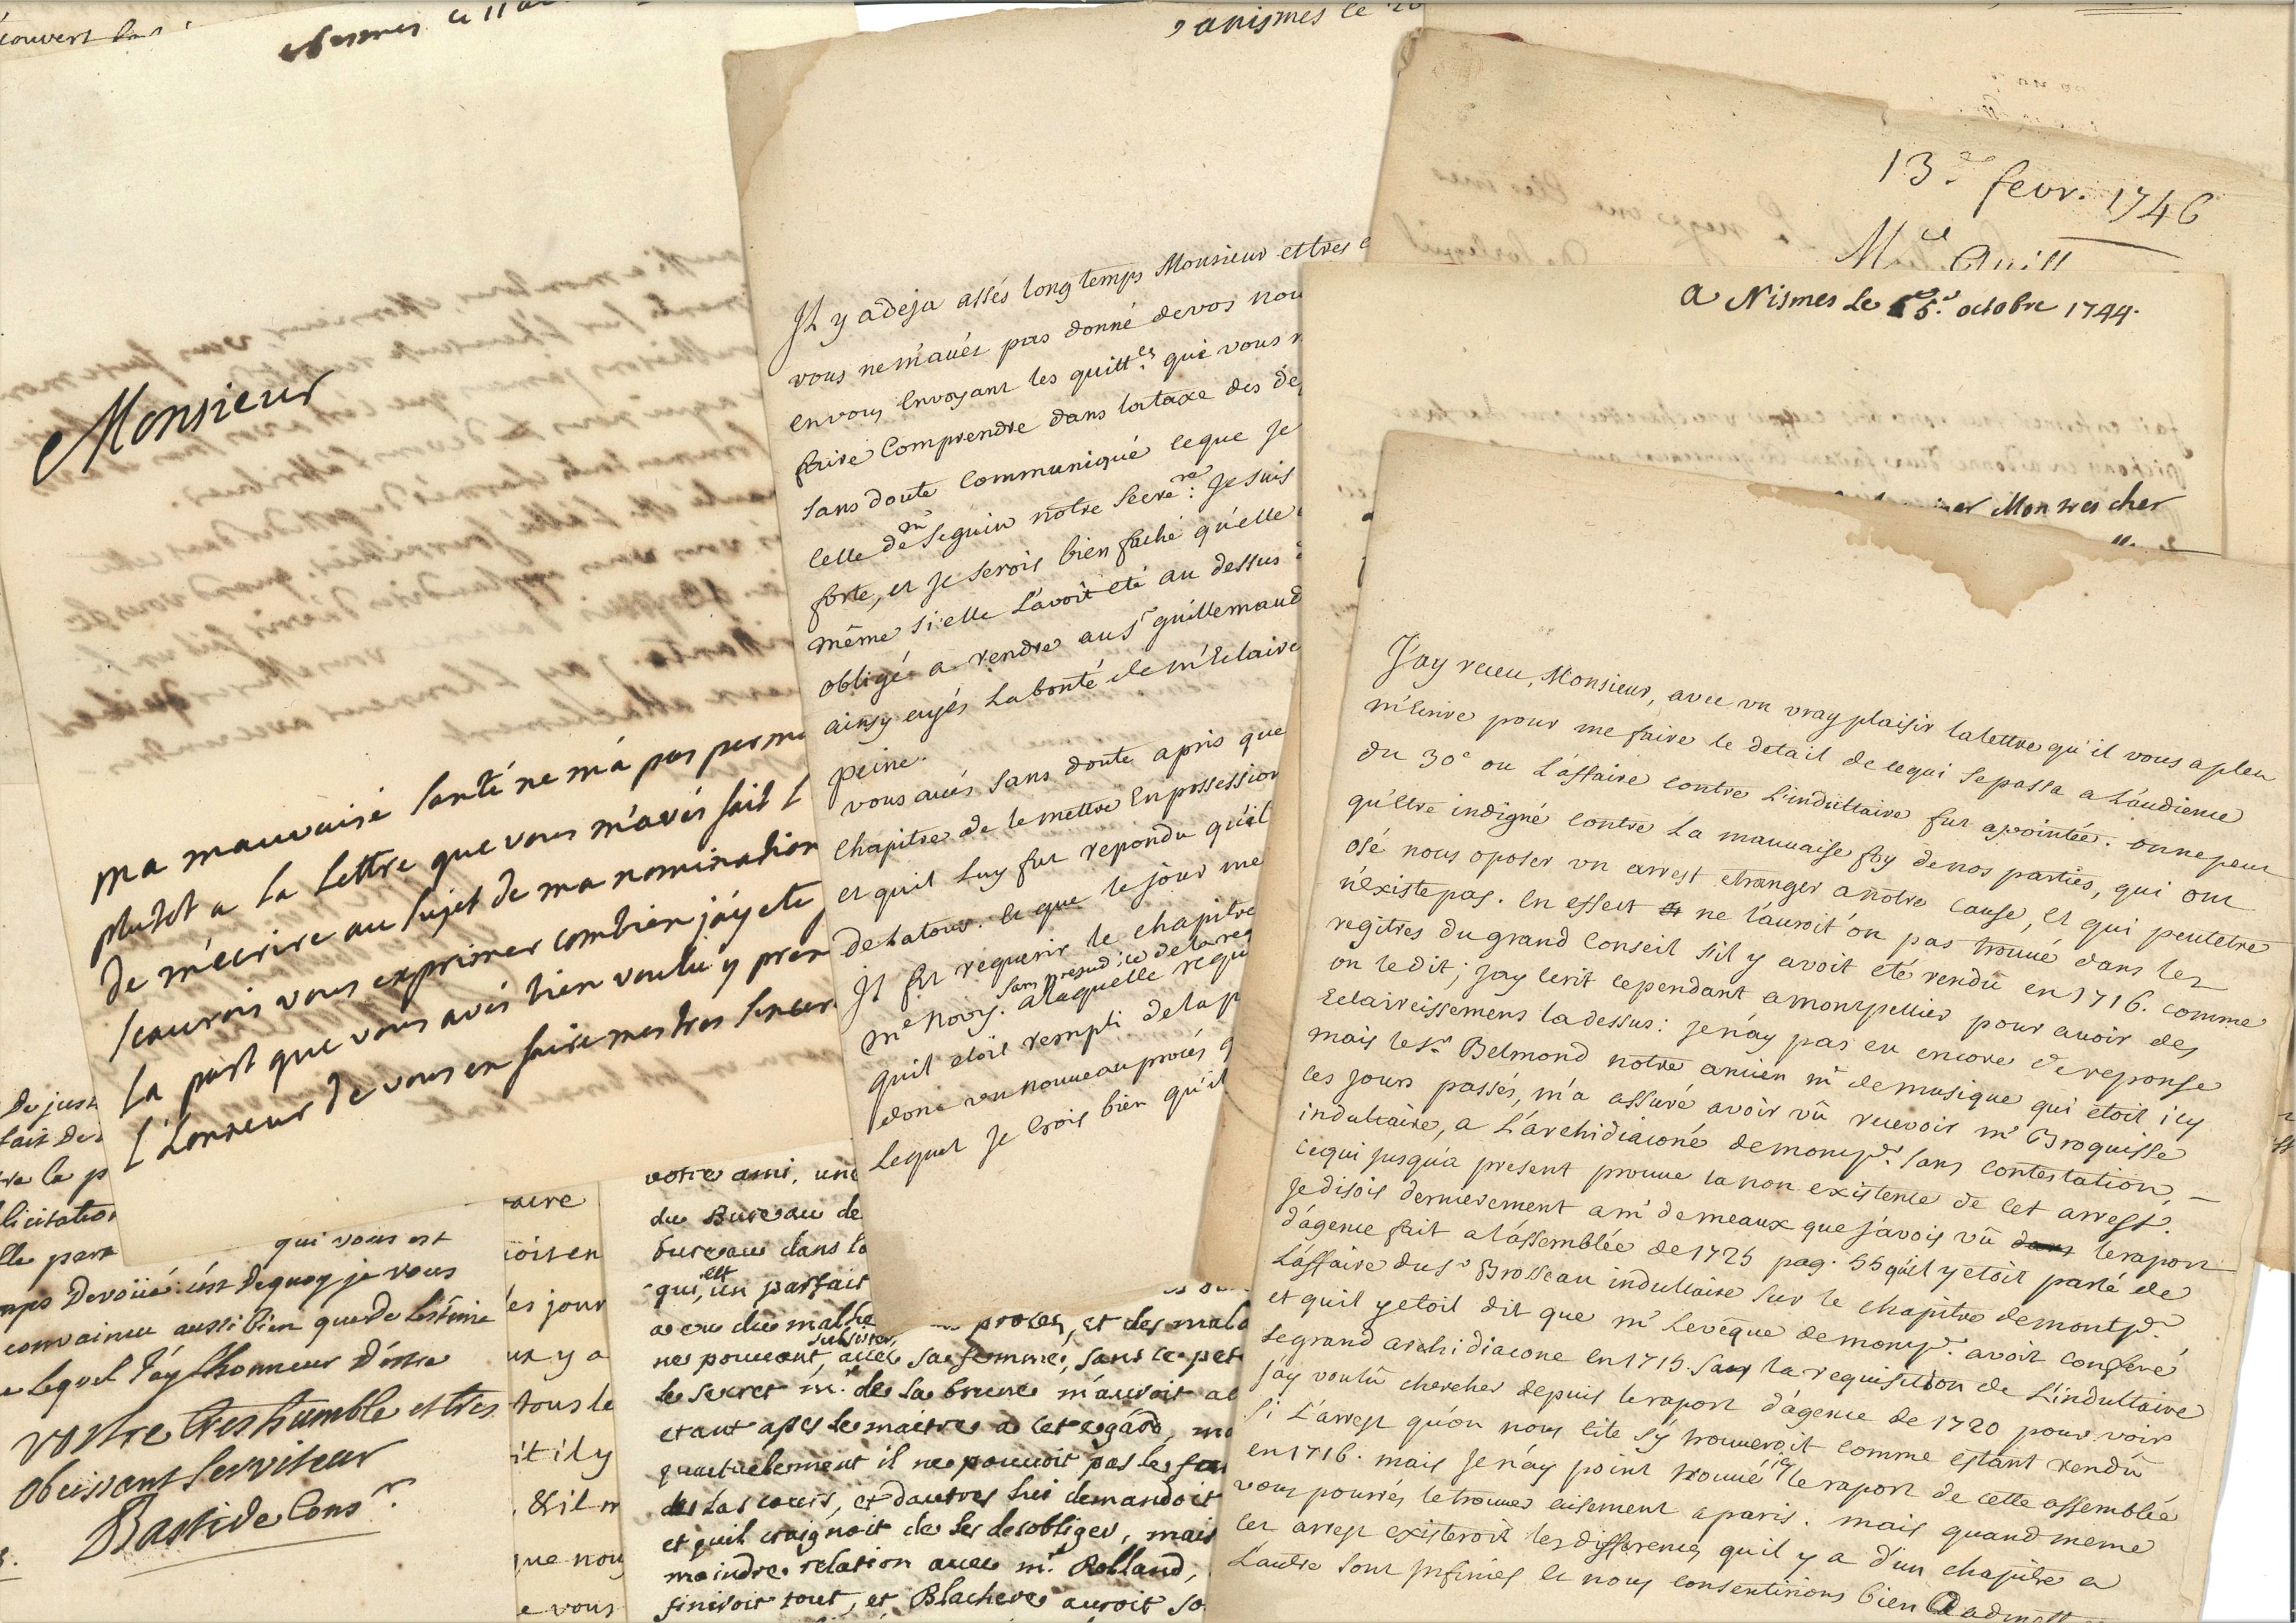 couvert
a nismes le
13.e fevr. 1746
M
a Nismes le 5.e octobre 1744.
Mon tres cher
Monsieur
ma mauvaise santé ne m'a pas permi
plutot a la lettre que vous m'avés fait l
de m'écrire au sujet de ma nomination
scaurois vous exprimer combien j'ay ete
la part que vous avés bien voulu y pren
l'honneur de vous en faire mes tres sincer
Il y a deja assés long temps Monsieur et tres c
vous ne m'avés pas donné de vos nou
en vous envoyant les quitt.es que vous
faire comprendre dans la taxe des de
sans doute communiqué ce que je
celle de mr Seguin notre secre.re je suis
forte, et je serois bien faché qu'elle
même si elle l'avoit eté au dessus
obligé a rendre au sr guillemaud
ainsy eyés la bonté de m'eclaire
peine.
vous avés sans doute apris que
chapitre de le mettre en possession
et quil luy fut repondu qu'il
de latour. ce que le jour me
il fit requerir le chapitre
sans prejudice de la req
me Novy. a laquelle requ
quil etoit rempli de la p
donc un nouveau procés q
lequel je crois bien qu'il
J'ay receu, Monsieur, avec un vray plaisir la lettre qu'il vous a pleu
m'ecrire pour me faire le detail de ce qui se passa a l'audience
du 30e ou l'affaire contre l'indultaire fut apointée. on ne peut
qu'etre indigné contre la mauvaise foy de nos parties, qui ont
osé nous oposer un arrest etranger a notre cause, et qui peutetre
n'existe pas. en effect ne l'auroit on pas trouvé dans les
regitres du grand Conseil s'il y avoit eté rendû en 1716. comme
on le dit; j'ay ecrit cependant a montpellier pour avoir des
eclaircissemens la dessus: je n'ay pas eu encore de reponse
mais le sr Belmond notre ancien me de musique qui etoit icy
ces jours passés, m'a assuré avoir vû recevoir mr Broquisse
indultaire, a l'archidiaconé de montp.er sans contestation, –
ce qui jusqu'a present prouve la non existence de cet arrest.
je disois dernierement a mr de meaux que j'avois vû dans le raport
d'agence fait a l'assemblée de 1725 pag. 55 qu'il y etoit parlé de
l'affaire du sr Brosseau indultaire sur le chapitre de montp.er
et quil y etoit dit que mr l'eveque de montp.er avoit conferé
le grand archidiacone en 1715. sauf la requisition de l'indultaire
j'ay voulû chercher depuis le raport d'agence de 1720 pour voir
si l'arrest qu'on nous cite s'y trouveroit comme estant rendû
en 1716. mais je n'ay point trouvé icy le raport de cette assemblée
vous pourrés le trouver aisement a paris. mais quand meme
cet arrest existeroit les differences qu'il y a d'un chapitre a
l'autre sont infinies et nous consentirions bien
de just
fait de
re le p
licitation
lle para
qui vous est
mps devoüé. c'est dequoy je vous
convaincu aussi bien que de l'estime
lequel j'ay l'honneur d'estre
vostre tres humble et tres
obeissant serviteur
Bastide Cons.r
aire
oit en
les jour
ux y a
tous le
it il y
& il n
que nou
e vous
votre ami, un
du Bureau de
bureau dans la
qui est un parfait
a eu du malhe
procez, et des mala
subsister
ne pouvant, avec sa femme, sans ce pet
le secret mr. de la brune m'auroit
etant assés le maitre a cet egard, ma
quactuelement il ne pouvoit pas le fa
des las cours, et dautres lui demandoit
et quil craignoit de les desobliger, mais
moindre relation avec mr. Rolland,
finiroit tout, et Blachere auroit so